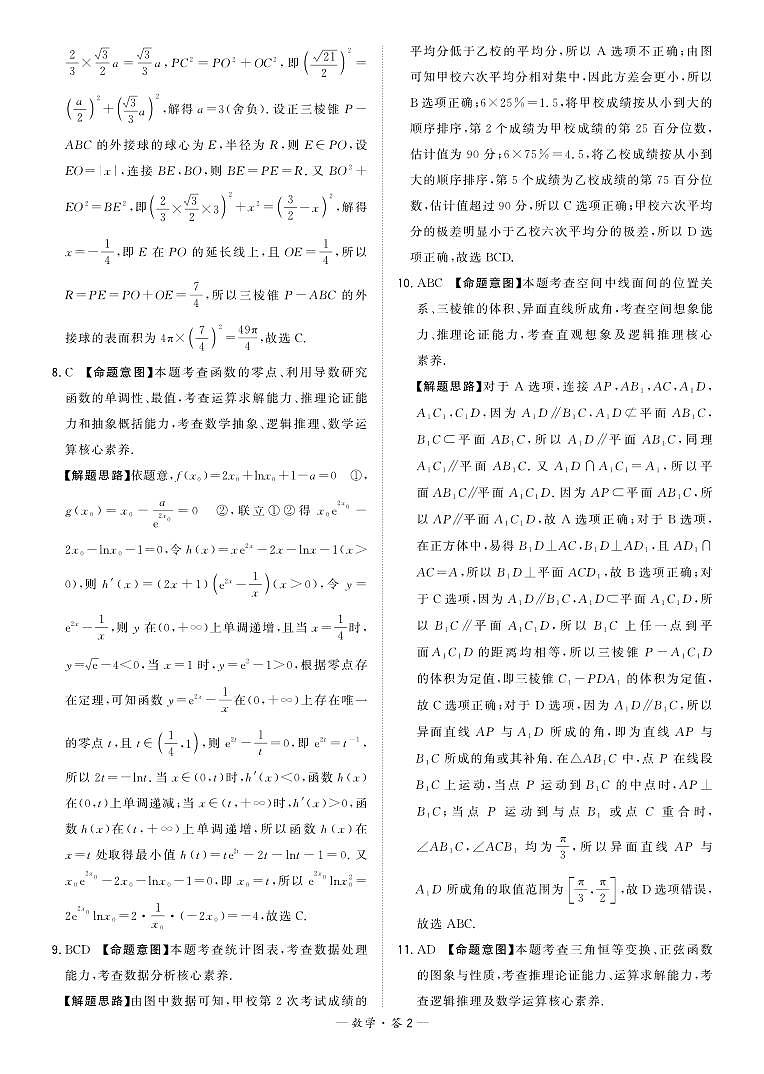 2/3×√3/2 a=√3/3 a,PC²=PO²+OC²,即(√21/2)²=
(a/2)²+(√3/3 a)²,解得 a=3(舍负).设正三棱锥 P-
ABC 的外接球的球心为 E,半径为 R,则 E∈PO,设
EO=|x|,连接 BE,BO,则 BE=PE=R.又 BO²+
EO²=BE²,即(2/3×√3/2×3)²+x²=(3/2-x)²,解得
x=-1/4,即 E 在 PO 的延长线上,且 OE=1/4,所以
R=PE=PO+OE=7/4,所以三棱锥 P-ABC 的外
接球的表面积为 4π×(7/4)²=49π/4,故选 C.
8. C 【命题意图】本题考查函数的零点、利用导数研究
函数的单调性、最值,考查运算求解能力、推理论证能
力和抽象概括能力,考查数学抽象、逻辑推理、数学运
算核心素养.
【解题思路】依题意,f(x₀)=2x₀+lnx₀+1-a=0 ①,
g(x₀)=x₀-a/e^{2x₀}=0 ②,联立①②得 x₀e^{2x₀}-
2x₀-lnx₀-1=0,令 h(x)=xe^{2x}-2x-lnx-1(x>
0),则 h′(x)=(2x+1)(e^{2x}-1/x)(x>0),令 y=
e^{2x}-1/x,则 y 在(0,+∞)上单调递增,且当 x=1/4时,
y=√e-4<0,当 x=1 时,y=e²-1>0,根据零点存
在定理,可知函数 y=e^{2x}-1/x在(0,+∞)上存在唯一
的零点 t,且 t∈(1/4,1),则 e^{2t}-1/t=0,即 e^{2t}=t⁻¹,
所以 2t=-lnt.当 x∈(0,t)时,h′(x)<0,函数 h(x)
在(0,t)上单调递减;当 x∈(t,+∞)时,h′(x)>0,函
数 h(x)在(t,+∞)上单调递增,所以函数 h(x)在
x=t 处取得最小值 h(t)=te^{2t}-2t-lnt-1=0.又
x₀e^{2x₀}-2x₀-lnx₀-1=0,即 x₀=t,所以 e^{2x₀}lnx₀²=
2e^{2x₀}lnx₀=2·1/x₀·(-2x₀)=-4,故选 C.
9. BCD 【命题意图】本题考查统计图表,考查数据处理
能力,考查数据分析核心素养.
【解题思路】由图中数据可知,甲校第 2 次考试成绩的
平均分低于乙校的平均分,所以 A 选项不正确;由图
可知甲校六次平均分相对集中,因此方差会更小,所以
B 选项正确;6×25%=1.5,将甲校成绩按从小到大的
顺序排序,第 2 个成绩为甲校成绩的第 25 百分位数,
估计值为 90 分;6×75%=4.5,将乙校成绩按从小到
大的顺序排序,第 5 个成绩为乙校成绩的第 75 百分位
数,估计值超过 90 分,所以 C 选项正确;甲校六次平均
分的极差明显小于乙校六次平均分的极差,所以 D 选
项正确,故选 BCD.
10. ABC 【命题意图】本题考查空间中线面间的位置关
系、三棱锥的体积、异面直线所成角,考查空间想象能
力、推理论证能力,考查直观想象及逻辑推理核心
素养.
【解题思路】对于 A 选项,连接 AP,AB₁,AC,A₁D,
A₁C₁,C₁D,因为 A₁D∥B₁C,A₁D⊄平面 AB₁C,
B₁C⊂平面 AB₁C,所以 A₁D∥平面 AB₁C,同理
A₁C₁∥平面 AB₁C.又 A₁D∩A₁C₁=A₁,所以平
面 AB₁C∥平面 A₁C₁D.因为 AP⊂平面 AB₁C,所
以 AP∥平面 A₁C₁D,故 A 选项正确;对于 B 选项,
在正方体中,易得 B₁D⊥AC,B₁D⊥AD₁,且 AD₁∩
AC=A,所以 B₁D⊥平面 ACD₁,故 B 选项正确;对
于 C 选项,因为 A₁D∥B₁C,A₁D⊂平面 A₁C₁D,所
以 B₁C∥平面 A₁C₁D,所以 B₁C 上任一点到平
面A₁C₁D 的距离均相等,所以三棱锥 P-A₁C₁D
的体积为定值,即三棱锥 C₁-PDA₁ 的体积为定值,
故 C 选项正确;对于 D 选项,因为 A₁D∥B₁C,所以
异面直线 AP 与 A₁D 所成的角,即为直线 AP 与
B₁C 所成的角或其补角.在△AB₁C 中,点 P 在线段
B₁C 上运动,当点 P 运动到 B₁C 的中点时,AP⊥
B₁C;当点 P 运动到与点 B₁ 或点 C 重合时,
∠AB₁C,∠ACB₁ 均为π/3,所以异面直线 AP 与
A₁D 所成角的取值范围为[π/3,π/2],故 D 选项错误,
故选 ABC.
11. AD 【命题意图】本题考查三角恒等变换、正弦函数
的图象与性质,考查推理论证能力、运算求解能力,考
查逻辑推理及数学运算核心素养.
— 数学·答 2 —